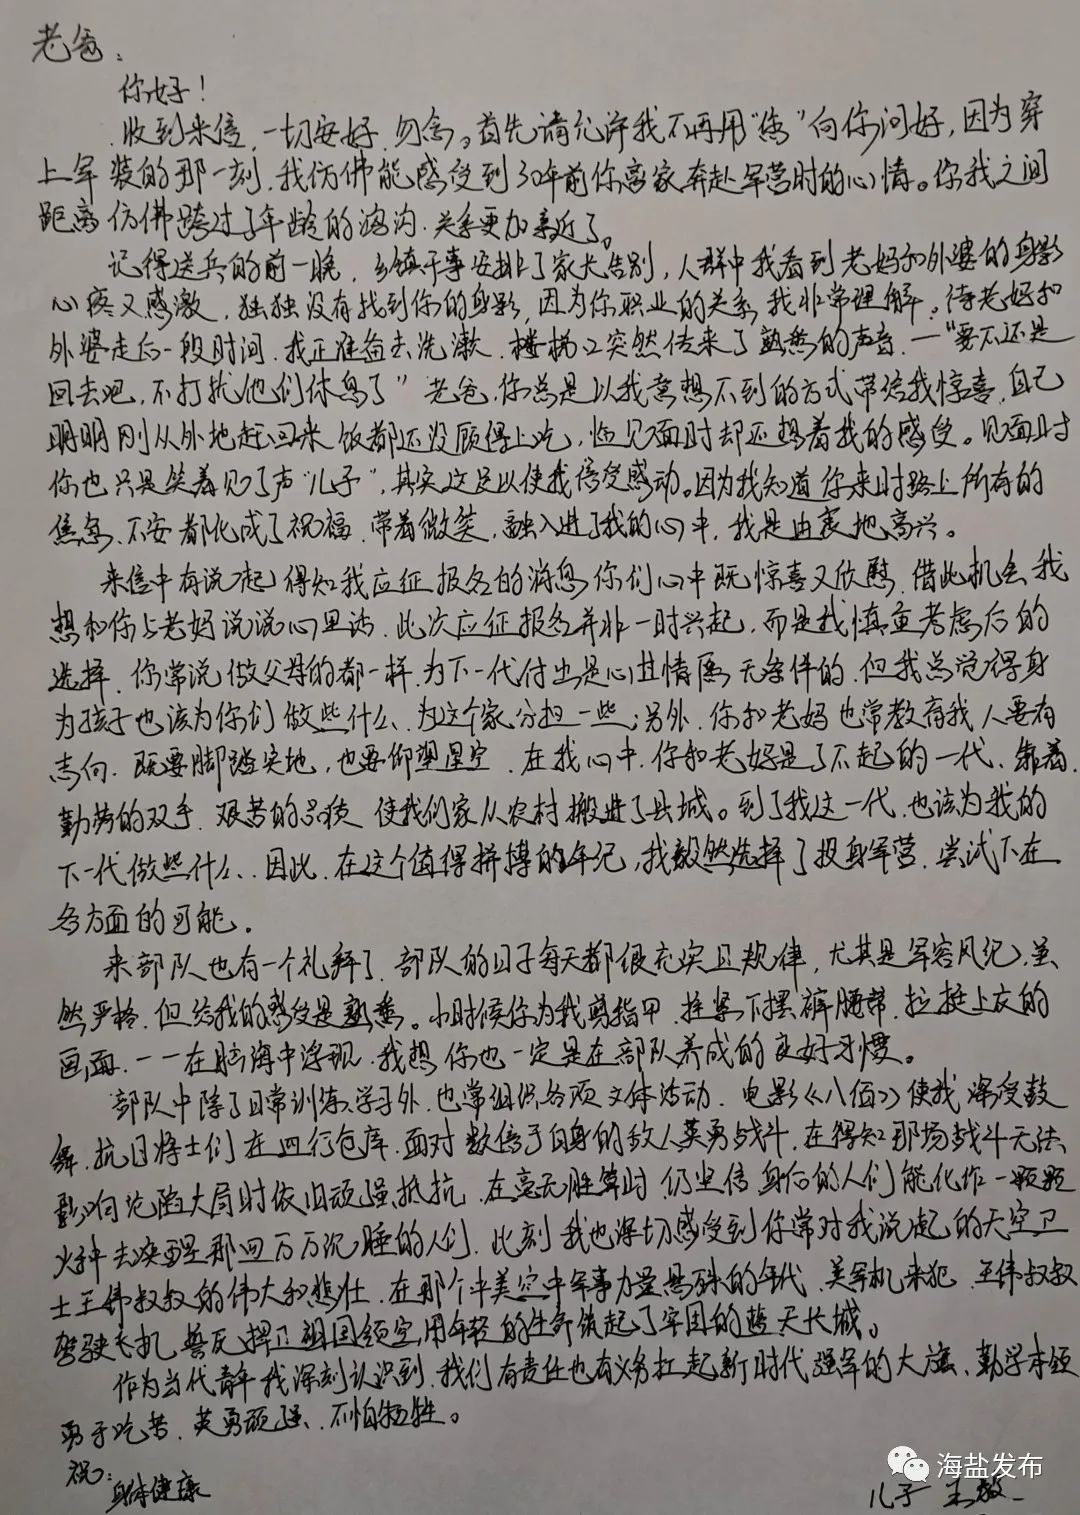 老爸：
你好！
收到来信，一切安好，勿念。首先请允许我不再用“您”向你问好，因为穿
上军装的那一刻，我仿佛能感受到30年前你离家奔赴军营时的心情。你我之间
距离仿佛跨过了年龄的鸿沟，关系更加亲近了。
记得送兵的前一晚，乡镇干事安排了家长告别，人群中我看到老妈和外婆的身影
心疼又感激，独独没有找到你的身影，因为你职业的关系，我非常理解。待老妈和
外婆走后一段时间，我正准备去洗漱，楼梯口突然传来了熟悉的声音，一“要不还是
回去吧，不打扰他们休息了”老爸，你总是以我意想不到的方式带给我惊喜，自己
明明刚从外地赶回来饭都还没顾得上吃，临见面时却还想着我的感受。见面时
你也只是笑着见了声“儿子”，其实这足以使我倍受感动。因为我知道你来时路上所有的
焦急、不安都化成了祝福，带着微笑，融入进了我的心中，我是由衷地高兴。
来信中有说起得知我应征报名的消息你们心中既惊喜又欣慰，借此机会我
想和你与老妈说说心里话，此次应征报名并非一时兴起，而是我慎重考虑后的
选择，你常说做父母的都一样，为下一代付出是心甘情愿、无条件的，但我总觉得身
为孩子也该为你们做些什么、为这个家分担一些；另外，你和老妈也常教育我人要有
志向，既要脚踏实地，也要仰望星空，在我心中，你和老妈是了不起的一代，靠着
勤劳的双手、艰苦的品质，使我们家从农村搬进了县城。到了我这一代，也该为我的
下一代做些什么，因此，在这个值得拼搏的年纪，我毅然选择了投身军营，尝试下在
各方面的可能。
来部队也有一个礼拜了，部队的日子每天都很充实且规律，尤其是军容风纪，虽
然严格，但给我的感受是熟悉。小时候你为我剪指甲、拴紧下摆裤腰带、拉挺上衣的
画面，一一在脑海中浮现，我想你也一定是在部队养成的良好习惯。
部队中除了日常训练、学习外，也常组织各项文体活动，电影《八佰》使我深受鼓
舞，抗日将士们在四行仓库，面对数倍于自身的敌人英勇战斗，在得知那场战斗无法
影响沦陷大局时依旧顽强抵抗，在毫无胜算时，仍坚信身后的人们能化作一颗颗
火种去唤醒那四万万沉睡的人们，此刻我也深切感受到你常对我说起的天空卫
士王伟叔叔的伟大和悲壮，在那个中美空中军事力量悬殊的年代，美军机来犯，王伟叔叔
驾驶飞机，誓死捍卫祖国领空，用年轻的生命筑起了牢固的蓝天长城。
作为当代青年，我深刻认识到，我们有责任也有义务扛起新时代强军的大旗、勤学本领
勇于吃苦、英勇顽强、不怕牺牲。
祝：
身体健康
儿子 王毅
海盐发布